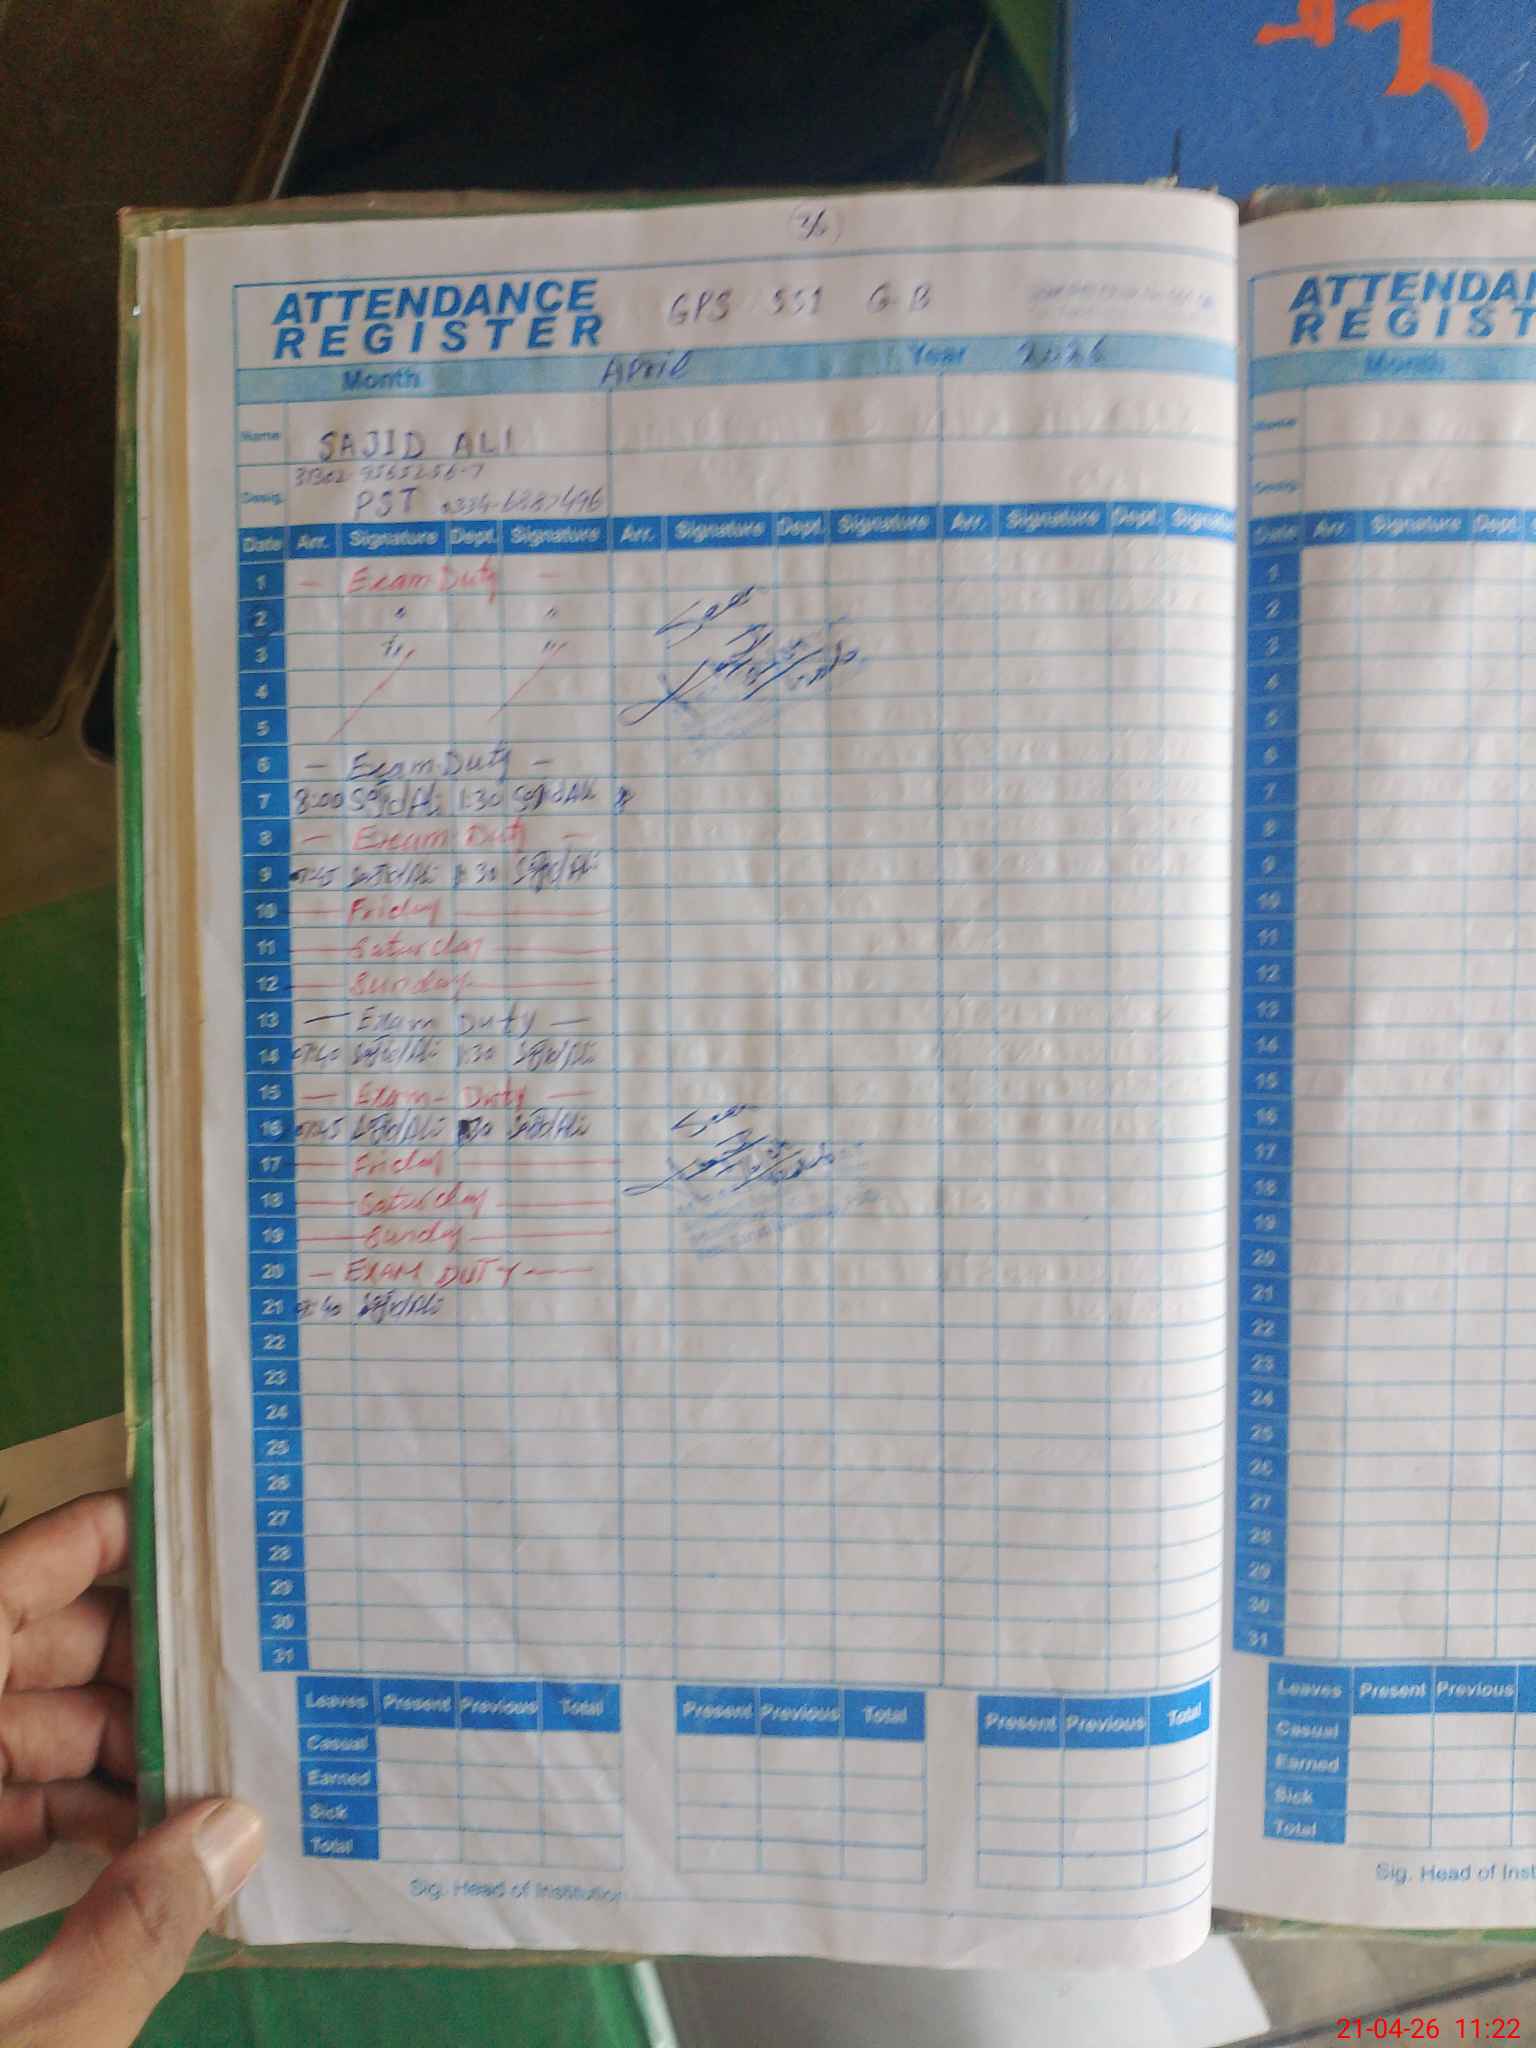 36
ATTENDANCE
REGISTER
GPS 551 GB
Month April Year 2026
Name SAJID ALI
31302-9565256-7
Desig. PST 0334-6887496
Date Arr. Signature Dept. Signature Arr. Signature Dept. Signature Arr. Signature Dept. Signature
1 — Exam Duty —
2 " "
3 " "
4
5
6 — Exam Duty —
7 8:00 Sajid Ali 1:30 Sajid Ali
8 — Exam Duty —
9 07:45 Sajid Ali 1:30 Sajid Ali
10 Friday
11 Saturday
12 Sunday
13 — Exam Duty —
14 07:40 Sajid Ali 1:30 Sajid Ali
15 — Exam Duty —
16 07:45 Sajid Ali 1:30 Sajid Ali
17 Friday
18 Saturday
19 Sunday
20 — EXAM DUTY —
21 Sajid Ali
22
23
24
25
26
27
28
29
30
31
Seen
Seen
Leaves Present Previous Total Present Previous Total Present Previous Total
Casual
Earned
Sick
Total
Sig. Head of Institution
ATTENDA
REGIST
Month
Name
Desig.
Date Arr. Signature Dept.
1
2
3
4
5
6
7
8
9
10
11
12
13
14
15
16
17
18
19
20
21
22
23
24
25
26
27
28
29
30
31
Leaves Present Previous
Casual
Earned
Sick
Total
Sig. Head of Inst
21-04-26 11:22